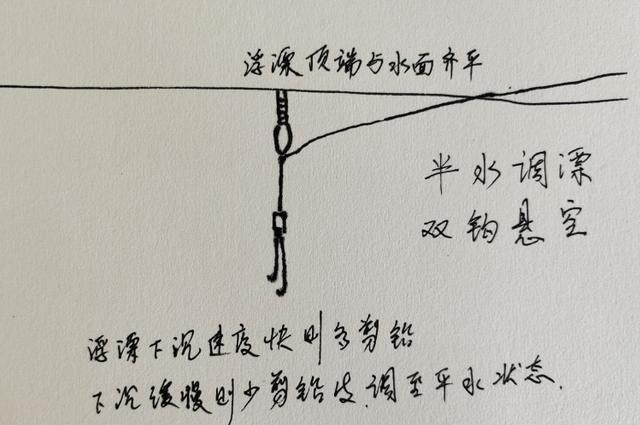 浮漂顶端与水面齐平
半水调漂
双钩悬空
浮漂下沉速度快则多剪铅
下沉缓慢则少剪铅皮.调至平水状态.